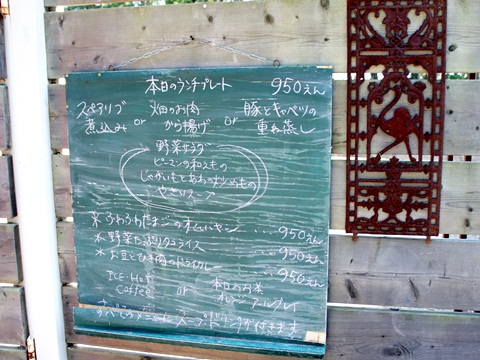 本日のランチプレート 950えん
スペアリブ 煮込み or 畑のお肉 から揚げ or 豚とキャベツの 重ね蒸し
野菜サラダ
ピーマンの和えもの
じゃがいもとあわの炒めもの
やさいスープ
* ふわふわたまごのオムハヤシ ・・・・950えん
* 野菜たっぷりタコライス ・・・950えん
* お豆とひき肉のドライカレー ・・・950えん
ICE・HOT Coffee or 本日のお茶 オレンジ アールグレイ
すべてのメニューにスープ、ドリンクが付きます